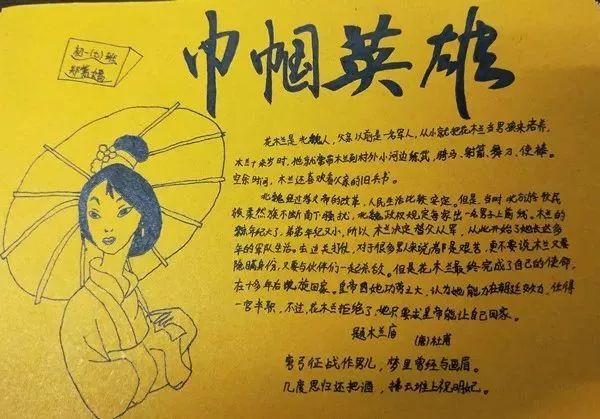 巾帼英雄
初一(5)班
郑
花木兰是北魏人，父亲以前是一名军人，从小就把花木兰当男孩来培养，
木兰十来岁时，他就常带木兰到村外小河边练武，骑马、射箭、舞刀、使棒。
空余时间，木兰还喜欢看父亲的旧兵书。
北魏经过孝文帝的改革，人民生活比较安定。但是，当时北方游牧民
族柔然族不断南下骚扰，北魏政权规定每家出一名男子上前线。木兰的
年纪大了，弟弟年纪又小，所以木兰决定替父从军，从此开始了她长达多
年的军队生活。去边关打仗，对于很多男人来说都是艰苦，更不要说木兰又要
隐瞒身份，又要与伙伴们一起杀敌。但是花木兰最终完成了自己的使命，
在十多年后凯旋回家。皇帝因她功劳之大，认为她能力在朝廷效力，任得
一官半职，不过，花木兰拒绝了，她只要求皇帝能让自己回家。
题木兰庙
(唐)杜甫
弯弓征战作男儿，梦里曾经与画眉。
几度思归还把酒，拂云堆上祝明妃。